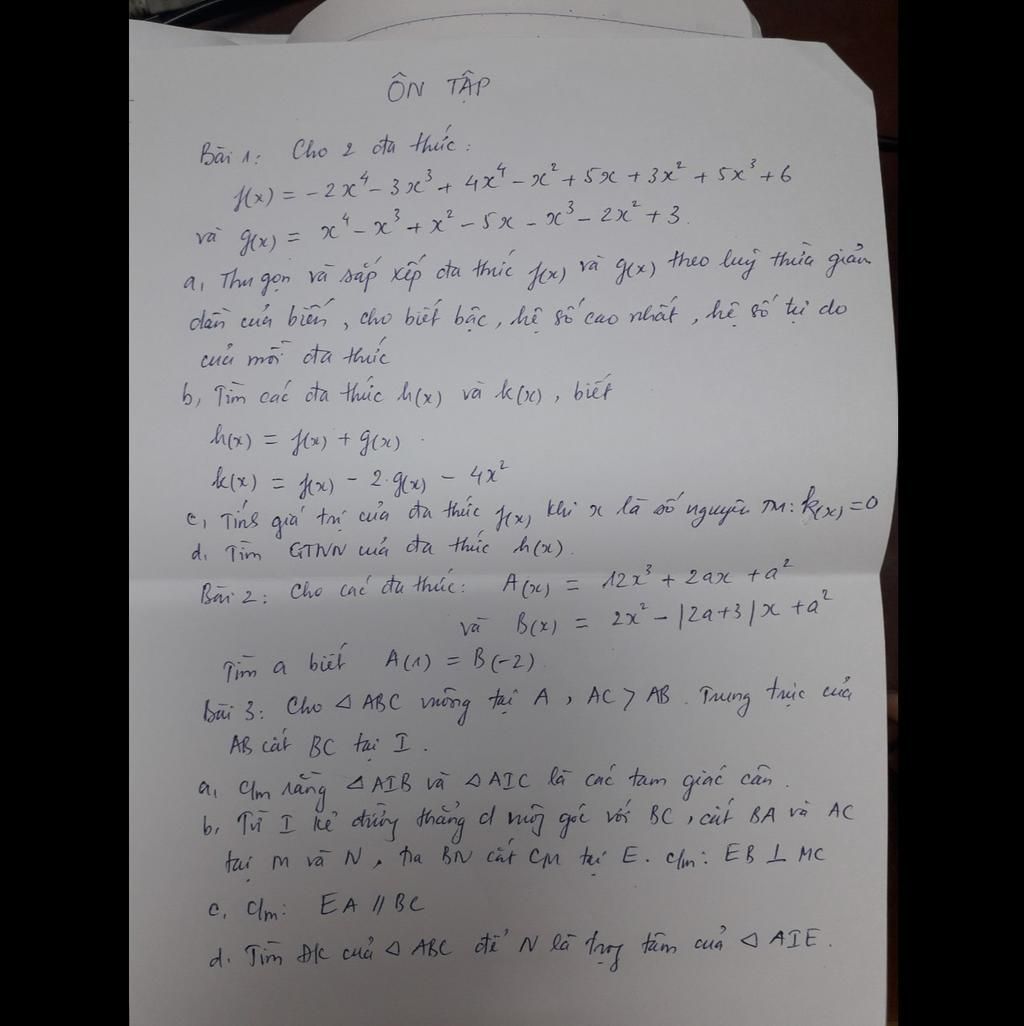 ÔN TẬP
Bài 1: Cho 2 đa thức:
f(x) = -2x⁴ - 3x³ + 4x⁴ - x² + 5x + 3x² + 5x³ + 6
và g(x) = x⁴ - x³ + x² - 5x - x³ - 2x² + 3.
a, Thu gọn và sắp xếp đa thức f(x) và g(x) theo luỹ thừa giảm
dần của biến, cho biết bậc, hệ số cao nhất, hệ số tự do
của mỗi đa thức
b, Tìm các đa thức h(x) và k(x), biết
h(x) = f(x) + g(x).
k(x) = f(x) - 2.g(x) - 4x²
c, Tính giá trị của đa thức f(x) khi x là số nguyên TM: k(x) = 0
d. Tìm GTNN của đa thức h(x).
Bài 2: Cho các đa thức: A(x) = 12x³ + 2ax + a²
và B(x) = 2x² - |2a+3|x + a²
Tìm a biết A(1) = B(-2).
Bài 3: Cho △ABC vuông tại A, AC > AB. Trung trực của
AB cắt BC tại I.
a, C/m rằng △AIB và △AIC là các tam giác cân.
b, Từ I kẻ đường thẳng d vuông góc với BC, cắt BA và AC
tại M và N, tia BN cắt CM tại E. C/m: EB ⊥ MC
c, C/m: EA // BC
d. Tìm ĐK của △ABC để N là trọng tâm của △AIE.